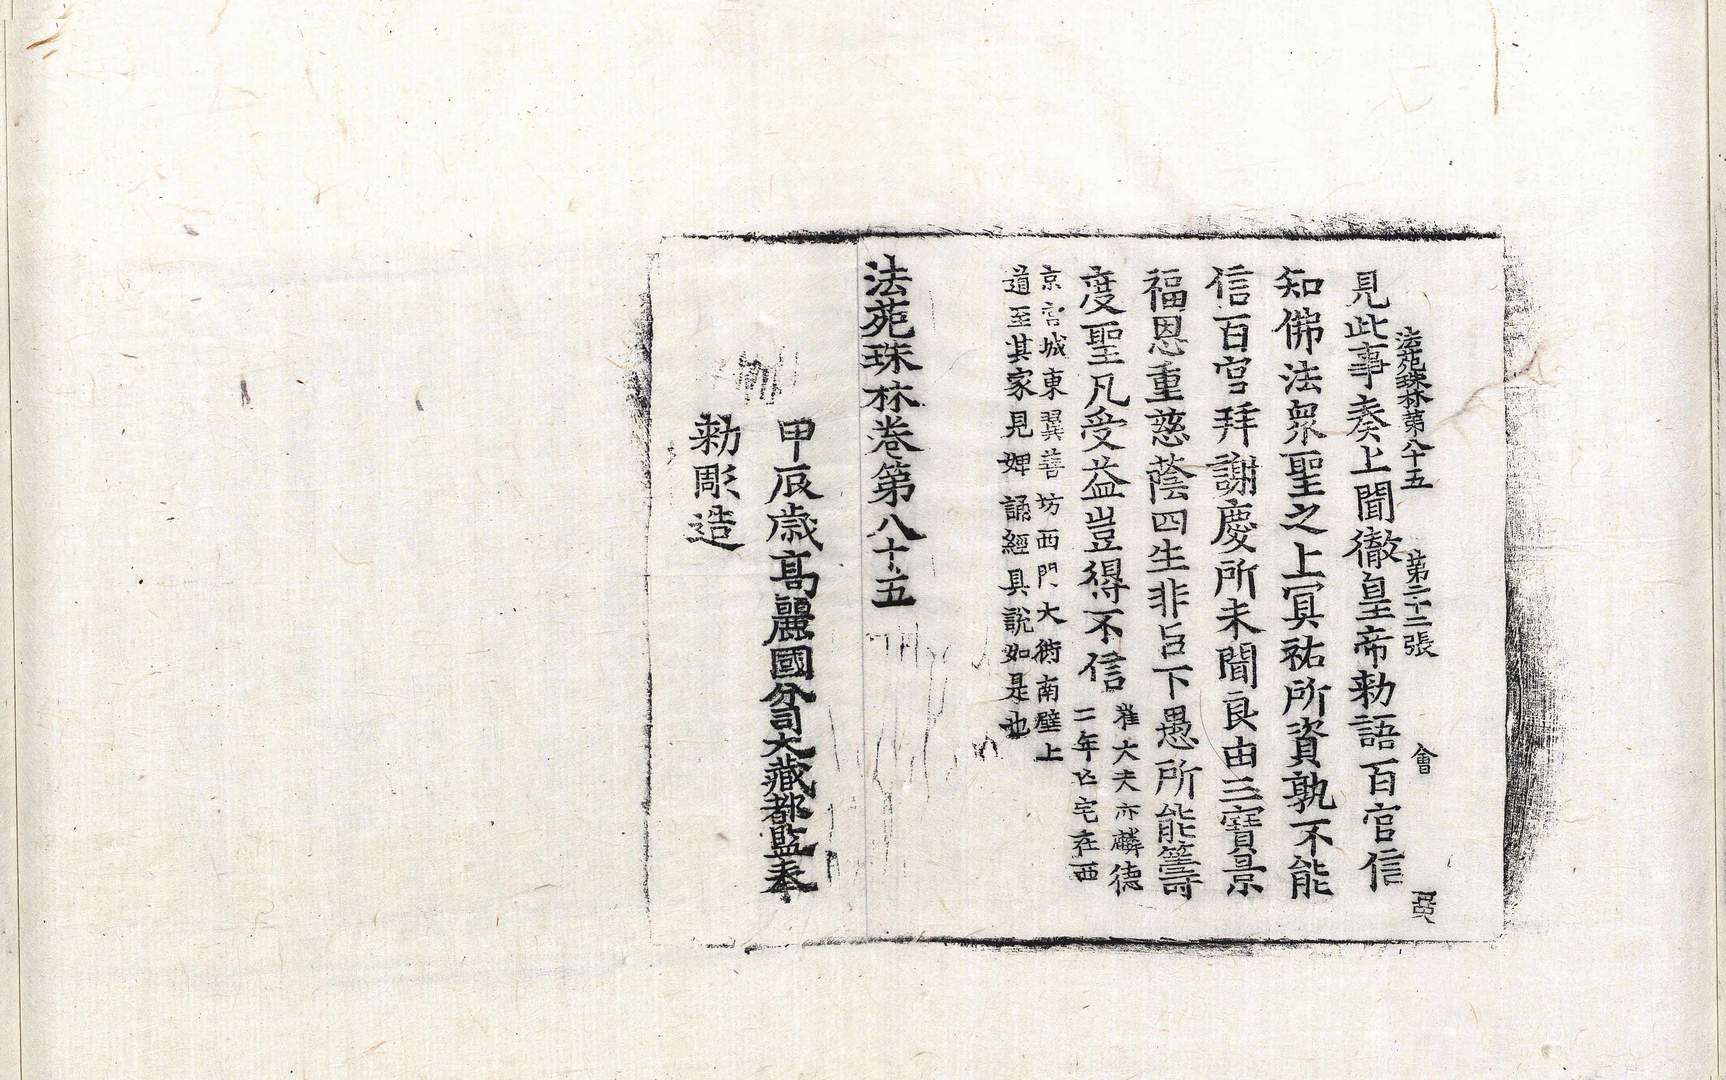 法苑珠林第八十五 第二十二張 會
見此事奏上聞徹皇帝勅語百官信
知佛法衆聖之上冥祐所資孰不能
信百官拜謝慶所未聞良由三寶景
福恩重慈蔭四生非吕下愚所能籌
度聖凡受益豈得不信
崔大夫亦麟德
二年亡宅在西
京宮城東翼善坊西門大街南壁上
道至其家見婢誦經具說如是也
法苑珠林卷第八十五
甲辰歲高麗國分司大藏都監奉
勅彫造